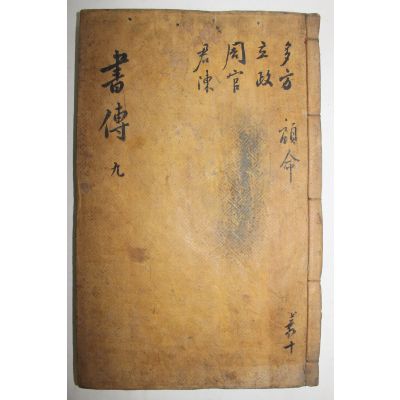 多方
立政
周官
君陳
顧命
書傳
九
十